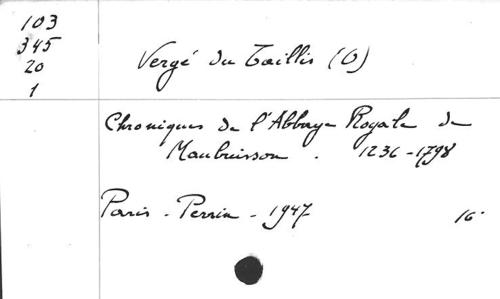 103
345
20
1
Vergé du Taillis (O)
Chroniques de l'Abbaye Royale de
Maubuisson. 1236-1798
Paris - Perrin - 1947 16°